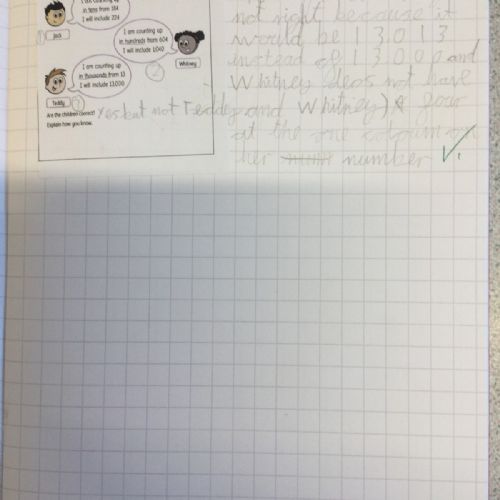 I am counting up
in tens from 184
I will include 224
Jack
I am counting up
in hundreds from 604
I will include 1,040
Whitney
I am counting up
in thousands from 13
I will include 13,000
Teddy
Are the children correct?
Explain how you know.
Yes but not Teddy and Whitney)
not right because it
would be 13013
instead of 13000 and
Whitney deos not have
four
at the one coloum on
her number